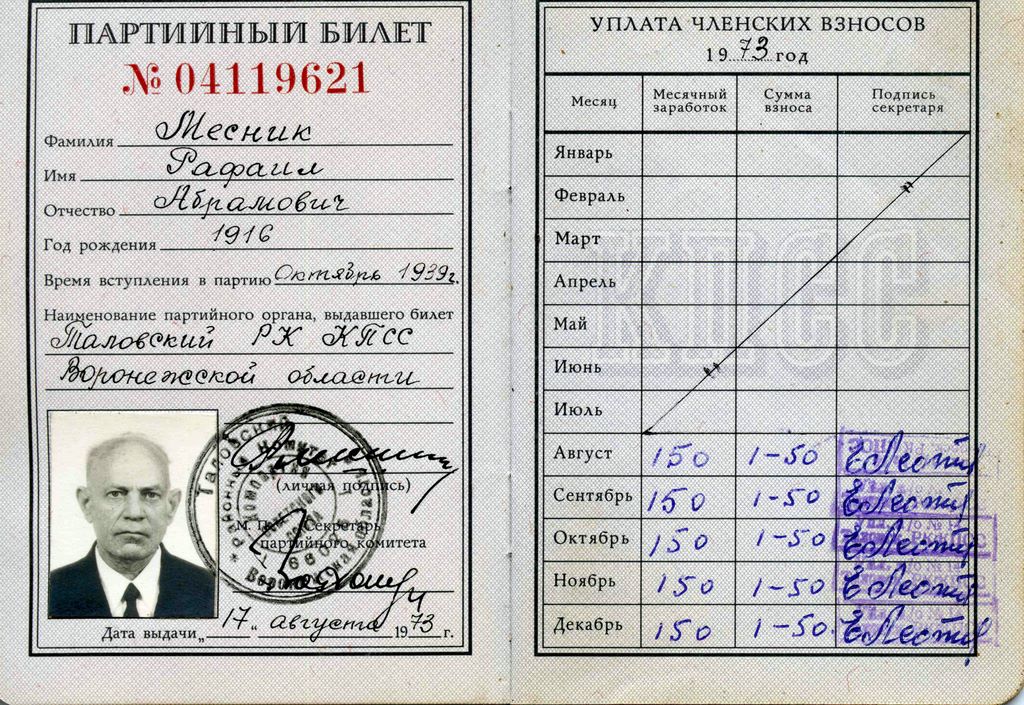 ПАРТИЙНЫЙ БИЛЕТ
№ 04119621
Фамилия Месник
Имя Рафаил
Отчество Абрамович
Год рождения 1916
Время вступления в партию Октябрь 1939г.
Наименование партийного органа, выдавшего билет
Таловский РК КПСС
Воронежской области
(личная подпись)
М. П. Секретарь
партийного комитета
Дата выдачи „17“ августа 1973 г.
УПЛАТА ЧЛЕНСКИХ ВЗНОСОВ
1973 год
Месяц Месячный заработок Сумма взноса Подпись секретаря
Январь
Февраль
Март
Апрель
Май
Июнь
Июль
Август 150 1-50
Сентябрь 150 1-50
Октябрь 150 1-50
Ноябрь 150 1-50
Декабрь 150 1-50
КПСС